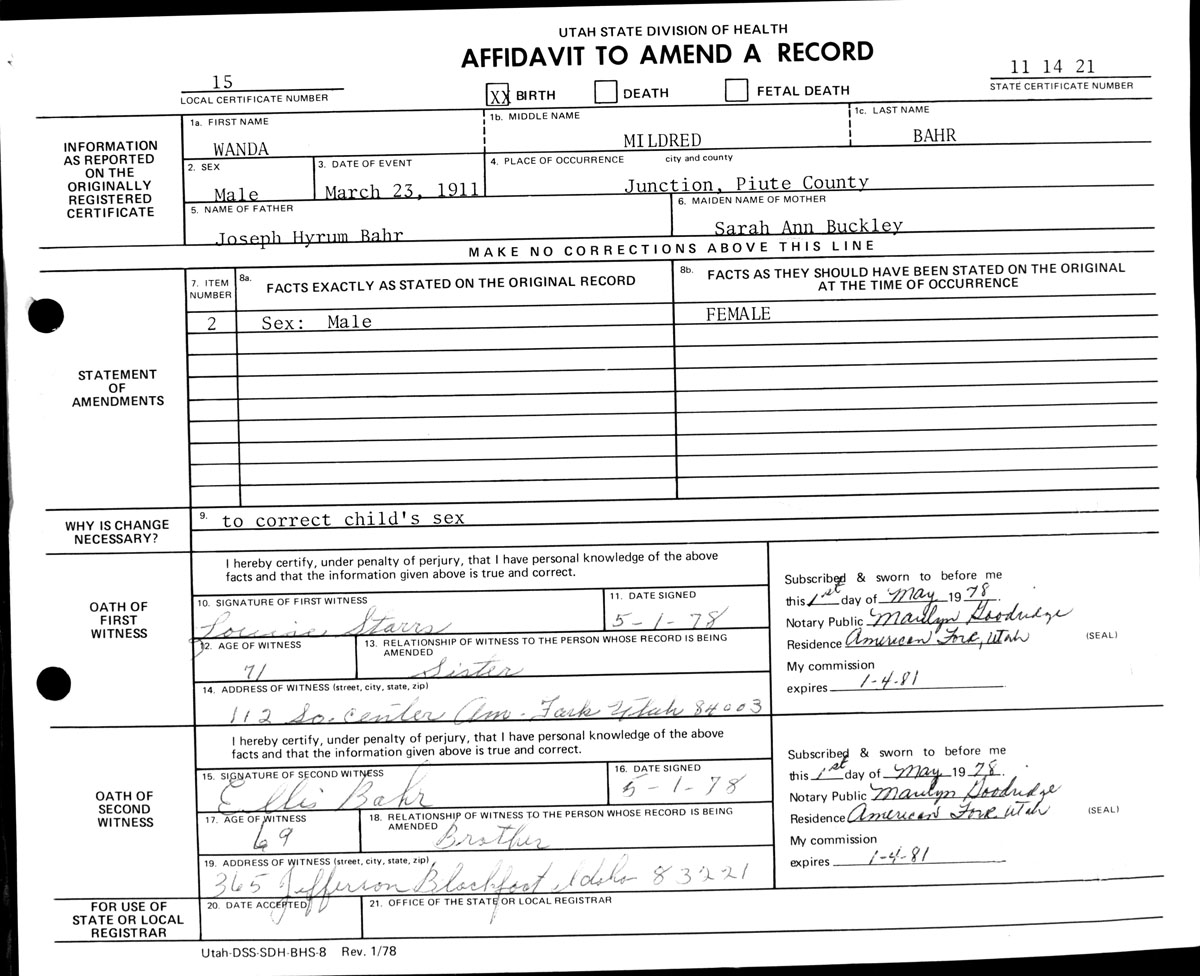 UTAH STATE DIVISION OF HEALTH
AFFIDAVIT TO AMEND A RECORD
15
LOCAL CERTIFICATE NUMBER
XX BIRTH DEATH FETAL DEATH
11 14 21
STATE CERTIFICATE NUMBER
INFORMATION AS REPORTED ON THE ORIGINALLY REGISTERED CERTIFICATE
1a. FIRST NAME 1b. MIDDLE NAME 1c. LAST NAME
WANDA MILDRED BAHR
2. SEX 3. DATE OF EVENT 4. PLACE OF OCCURRENCE city and county
Male March 23, 1911 Junction, Piute County
5. NAME OF FATHER 6. MAIDEN NAME OF MOTHER
Joseph Hyrum Bahr Sarah Ann Buckley
MAKE NO CORRECTIONS ABOVE THIS LINE
STATEMENT OF AMENDMENTS
7. ITEM NUMBER 8a. FACTS EXACTLY AS STATED ON THE ORIGINAL RECORD 8b. FACTS AS THEY SHOULD HAVE BEEN STATED ON THE ORIGINAL AT THE TIME OF OCCURRENCE
2 Sex: Male FEMALE
WHY IS CHANGE NECESSARY?
9. to correct child's sex
OATH OF FIRST WITNESS
I hereby certify, under penalty of perjury, that I have personal knowledge of the above
facts and that the information given above is true and correct.
10. SIGNATURE OF FIRST WITNESS 11. DATE SIGNED
Louise Starrs 5-1-78
12. AGE OF WITNESS 13. RELATIONSHIP OF WITNESS TO THE PERSON WHOSE RECORD IS BEING AMENDED
71 Sister
14. ADDRESS OF WITNESS (street, city, state, zip)
112 So. center Am. Fork Utah 84003
Subscribed & sworn to before me
this 1st day of May 1978.
Notary Public Marilyn Goodridge
Residence American Fork, Utah (SEAL)
My commission
expires 1-4-81
OATH OF SECOND WITNESS
I hereby certify, under penalty of perjury, that I have personal knowledge of the above
facts and that the information given above is true and correct.
15. SIGNATURE OF SECOND WITNESS 16. DATE SIGNED
Ellis Bahr 5-1-78
17. AGE OF WITNESS 18. RELATIONSHIP OF WITNESS TO THE PERSON WHOSE RECORD IS BEING AMENDED
69 Brother
19. ADDRESS OF WITNESS (street, city, state, zip)
365 Jefferson Blackfoot Idaho 83221
Subscribed & sworn to before me
this 1st day of May 1978.
Notary Public Marilyn Goodridge
Residence American Fork, Utah (SEAL)
My commission
expires 1-4-81
FOR USE OF STATE OR LOCAL REGISTRAR
20. DATE ACCEPTED 21. OFFICE OF THE STATE OR LOCAL REGISTRAR
Utah-DSS-SDH-BHS-8 Rev. 1/78